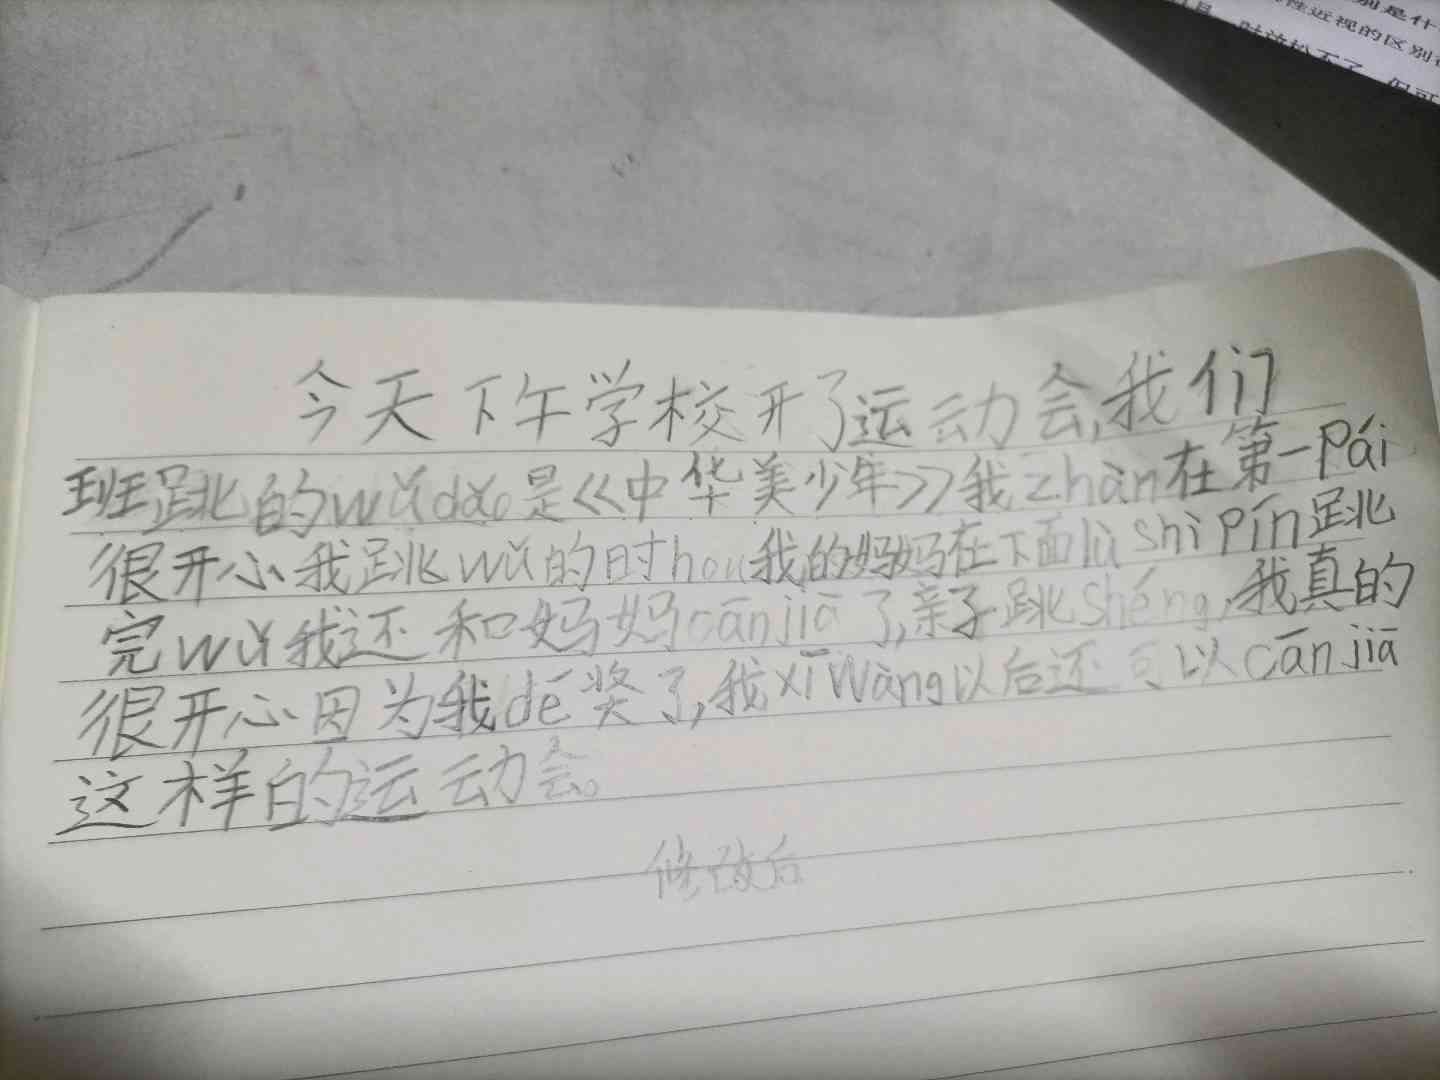 别是什
性近视的区别
今天下午学校开了运动会,我们
班跳的wǔdǎo是《中华美少年》我zhàn在第一Pái
很开心我跳wǔ的时hou我的妈妈在下面lù shì pín跳
完wǔ我还和妈妈cānjiā了,亲子跳shéng,我真的
很开心因为我dé奖了,我xī wàng以后还可以cānjiā
这样的运动会。
修改后